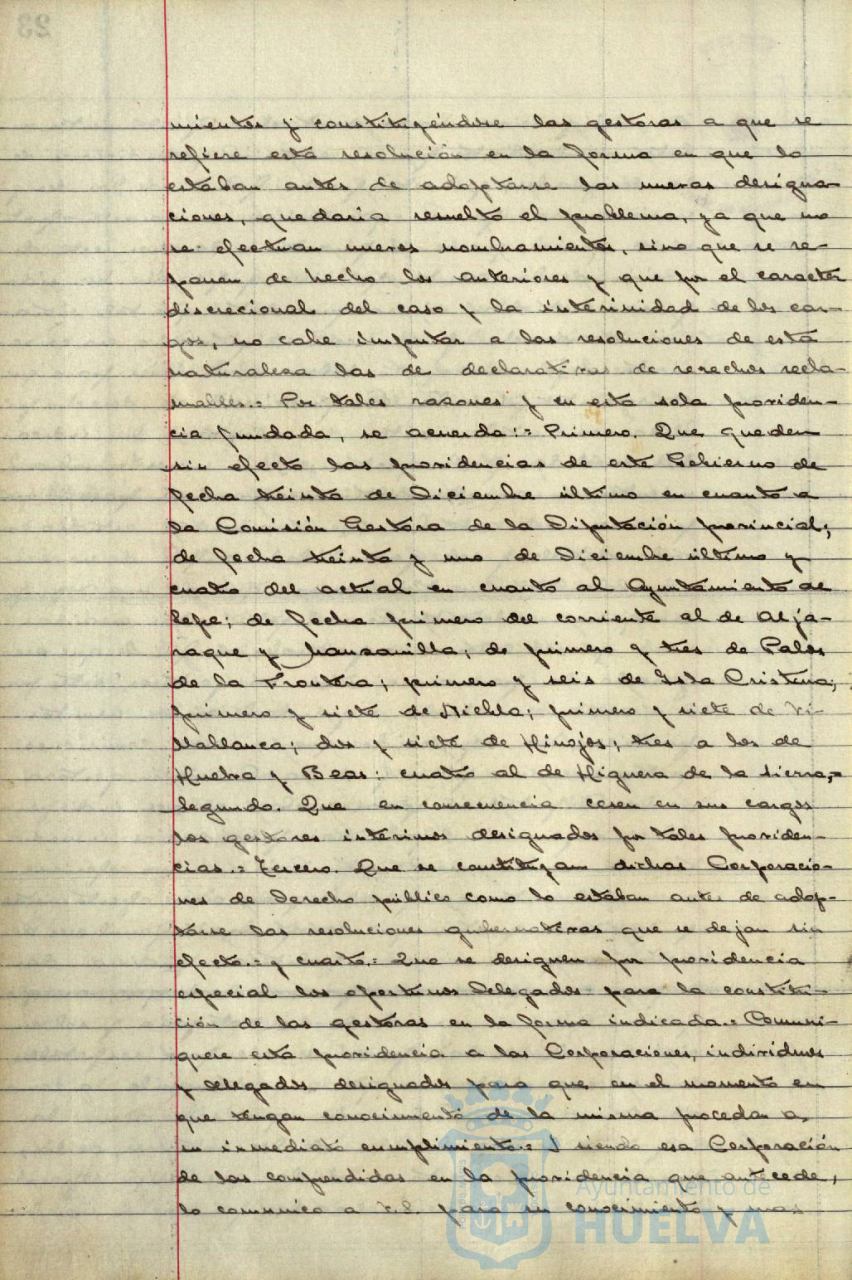 mientos y constituyéndose las gestoras a que se
refiere esta resolución en la forma en que lo
estaban antes de adoptarse las nuevas designa-
ciones, quedaria resuelto el problema, ya que no
se efectuan nuevos nombramientos, sino que se re-
ponen de hecho los anteriores y que por el caracter
discrecional del caso y la interinidad de los car-
gos, no cabe imputar a las resoluciones de esta
naturaleza las de declarativas de derechos recla-
mables.= Por tales razones y en esta sola providen-
cia fundada, se acuerda:= Primero. Que queden
sin efecto las providencias de este Gobierno de
fecha treinta de Diciembre último en cuanto a
la Comisión Gestora de la Diputación provincial;
de fecha treinta y uno de Diciembre último y
cuatro del actual en cuanto al Ayuntamiento de
Lepe; de fecha primero del corriente al de Alja-
raque y Manzanilla; de primero y tres de Palos
de la Frontera; primero y seis de Isla Cristina;
primero y siete de Niebla; primero y siete de Vi-
llablanca; dos y siete de Hinojos; tres a los de
Huelva y Beas: cuatro al de Higuera de la Sierra,=
Segundo. Que en consecuencia cesen en sus cargos
los gestores interinos designados por tales providen-
cias.= Tercero. Que se constituyan dichas Corporacio-
nes de Derecho público como lo estaban antes de adop-
tarse las resoluciones gubernativas que se dejan sin
efecto.= y cuarto.= Que se designen por providencia
especial los oportunos Delegados para la constitu-
ción de las gestoras en la forma indicada.= Comuni-
quese esta providencia a las Corporaciones, individuos
y delegados designados para que en el momento en
que tengan conocimiento de la misma procedan a
su inmediato cumplimiento.= Y siendo esa Corporación
de las comprendidas en la providencia que antecede,
lo comunico a V.E. para su conocimiento y mas
Ayuntamiento de
HUELVA